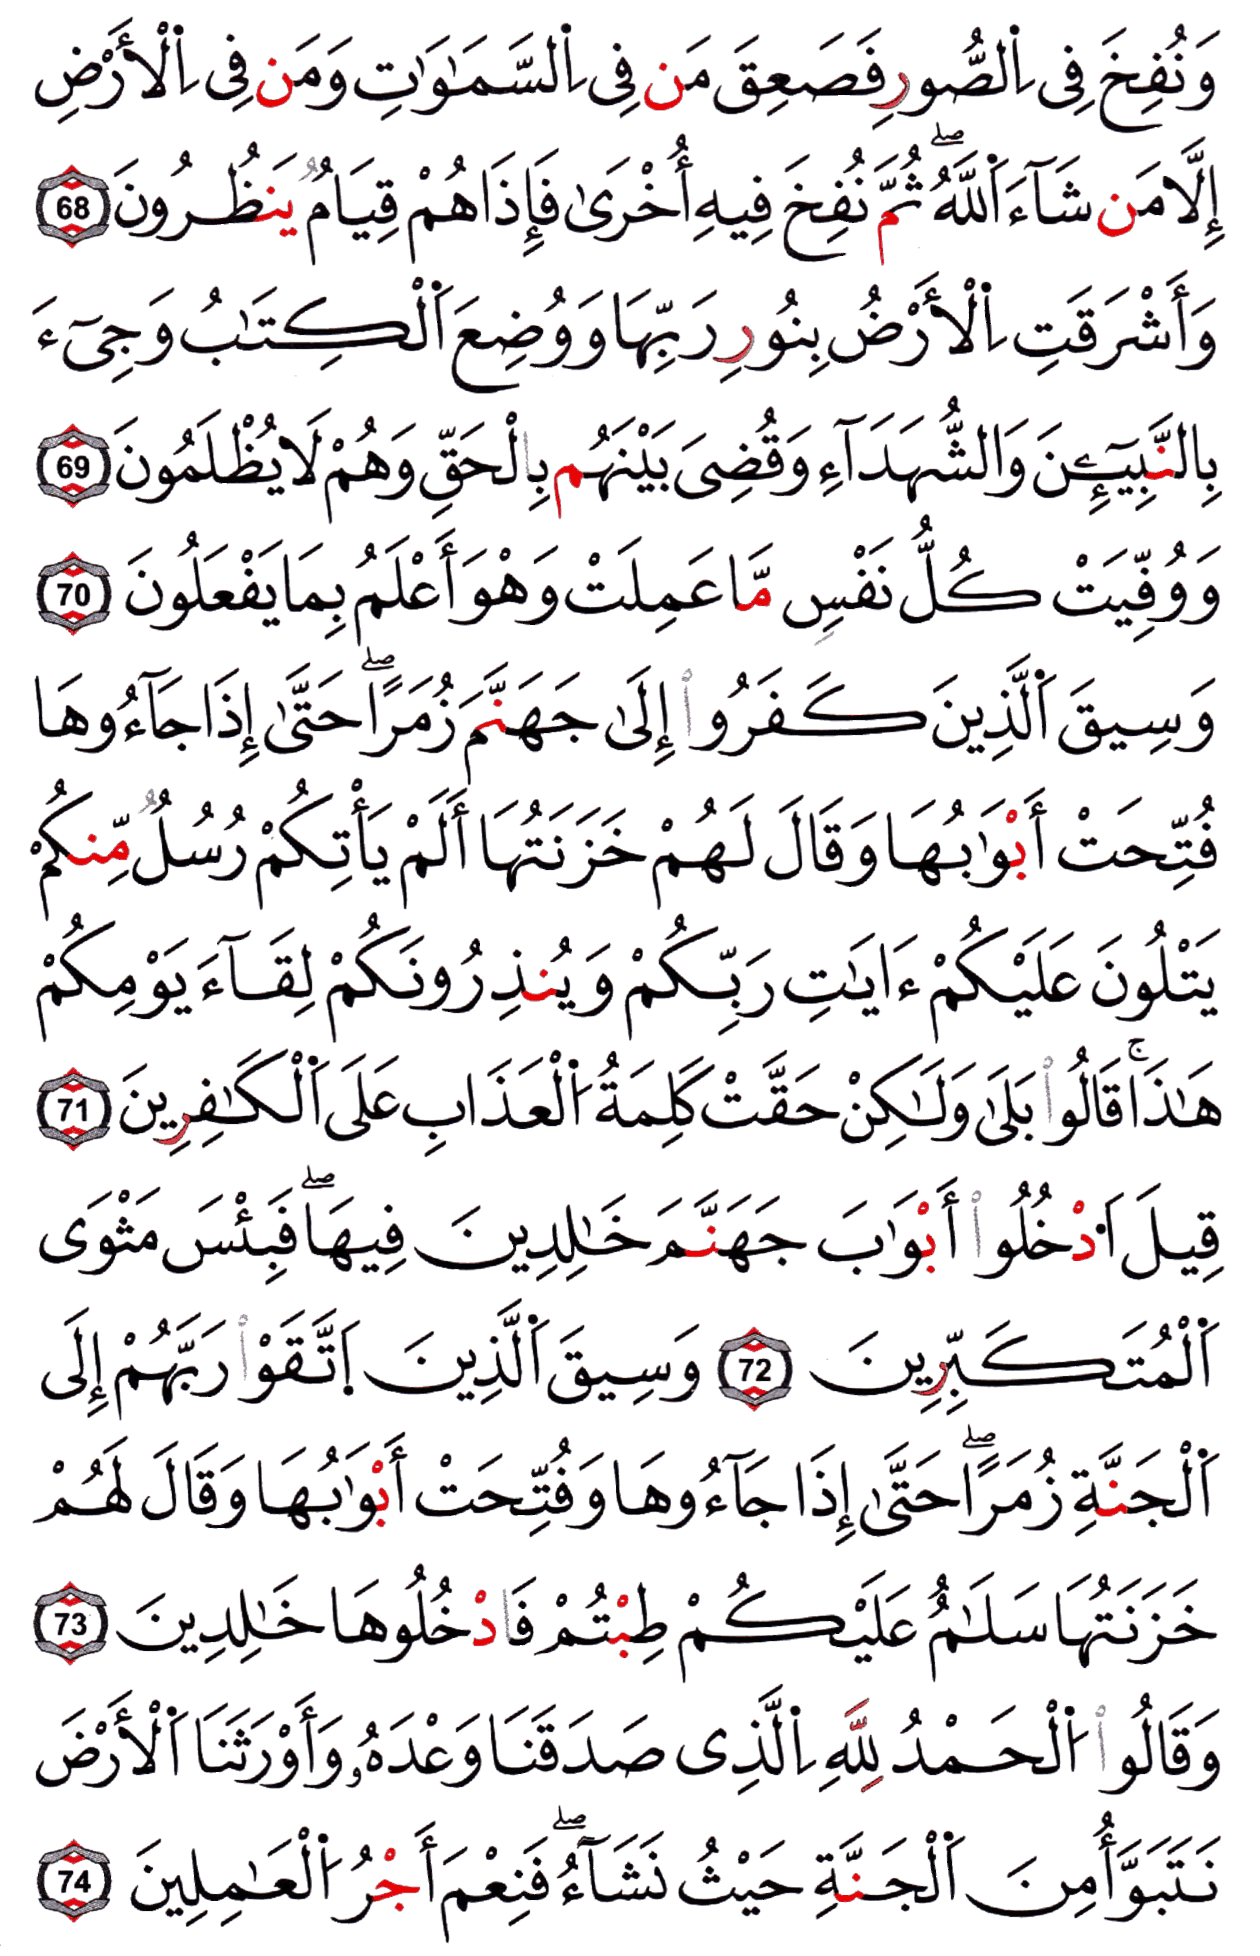 وَنُفِخَ فِى اِ۬لصُّورِ فَصَعِقَ مَن فِى اِ۬لسَّمَٰوَٰتِ وَمَن فِى اِ۬لْأَرْضِ
إِلَّا مَن شَآءَ اَ۬للَّهُۖ ثُمَّ نُفِخَ فِيهِ أُخْرَىٰ فَإِذَا هُمْ قِيَامٌ يَنظُرُونَ 68
وَأَشْرَقَتِ اِ۬لْأَرْضُ بِنُورِ رَبِّهَا وَوُضِعَ اَ۬لْكِتَٰبُ وَجِىٓءَ
بِالنَّبِيٓـِٔنَ وَالشُّهَدَآءِ وَقُضِىَ بَيْنَهُم بِالْحَقِّ وَهُمْ لَا يُظْلَمُونَ 69
وَوُفِّيَتْ كُلُّ نَفْسٍ مَّا عَمِلَتْ وَهْوَ أَعْلَمُ بِمَا يَفْعَلُونَ 70
وَسِيقَ اَ۬لَّذِينَ كَفَرُواْ إِلَىٰ جَهَنَّمَ زُمَرًاۖ حَتَّىٰ إِذَا جَآءُوهَا
فُتِّحَتْ أَبْوَٰبُهَا وَقَالَ لَهُمْ خَزَنَتُهَا أَلَمْ يَأْتِكُمْ رُسُلٌ مِّنكُمْ
يَتْلُونَ عَلَيْكُمْ ءَايَٰتِ رَبِّكُمْ وَيُنذِرُونَكُمْ لِقَآءَ يَوْمِكُمْ
هَٰذَاۚ قَالُواْ بَلَىٰ وَلَٰكِنْ حَقَّتْ كَلِمَةُ اُ۬لْعَذَابِ عَلَى اَ۬لْكَٰفِرِينَ 71
قِيلَ اَ۟دْخُلُواْ أَبْوَٰبَ جَهَنَّمَ خَٰلِدِينَ فِيهَاۖ فَبِئْسَ مَثْوَى
اَ۬لْمُتَكَبِّرِينَ 72 وَسِيقَ اَ۬لَّذِينَ اَ۪تَّقَوْاْ رَبَّهُمْ إِلَى
اَ۬لْجَنَّةِ زُمَرًاۖ حَتَّىٰ إِذَا جَآءُوهَا وَفُتِّحَتْ أَبْوَٰبُهَا وَقَالَ لَهُمْ
خَزَنَتُهَا سَلَٰمٌ عَلَيْكُمْ طِبْتُمْ فَادْخُلُوهَا خَٰلِدِينَ 73
وَقَالُواْ اُ۬لْحَمْدُ لِلَّهِ اِ۬لَّذِى صَدَقَنَا وَعْدَهُۥ وَأَوْرَثَنَا اَ۬لْأَرْضَ
نَتَبَوَّأُ مِنَ اَ۬لْجَنَّةِ حَيْثُ نَشَآءُۖ فَنِعْمَ أَجْرُ اُ۬لْعَٰمِلِينَ 74